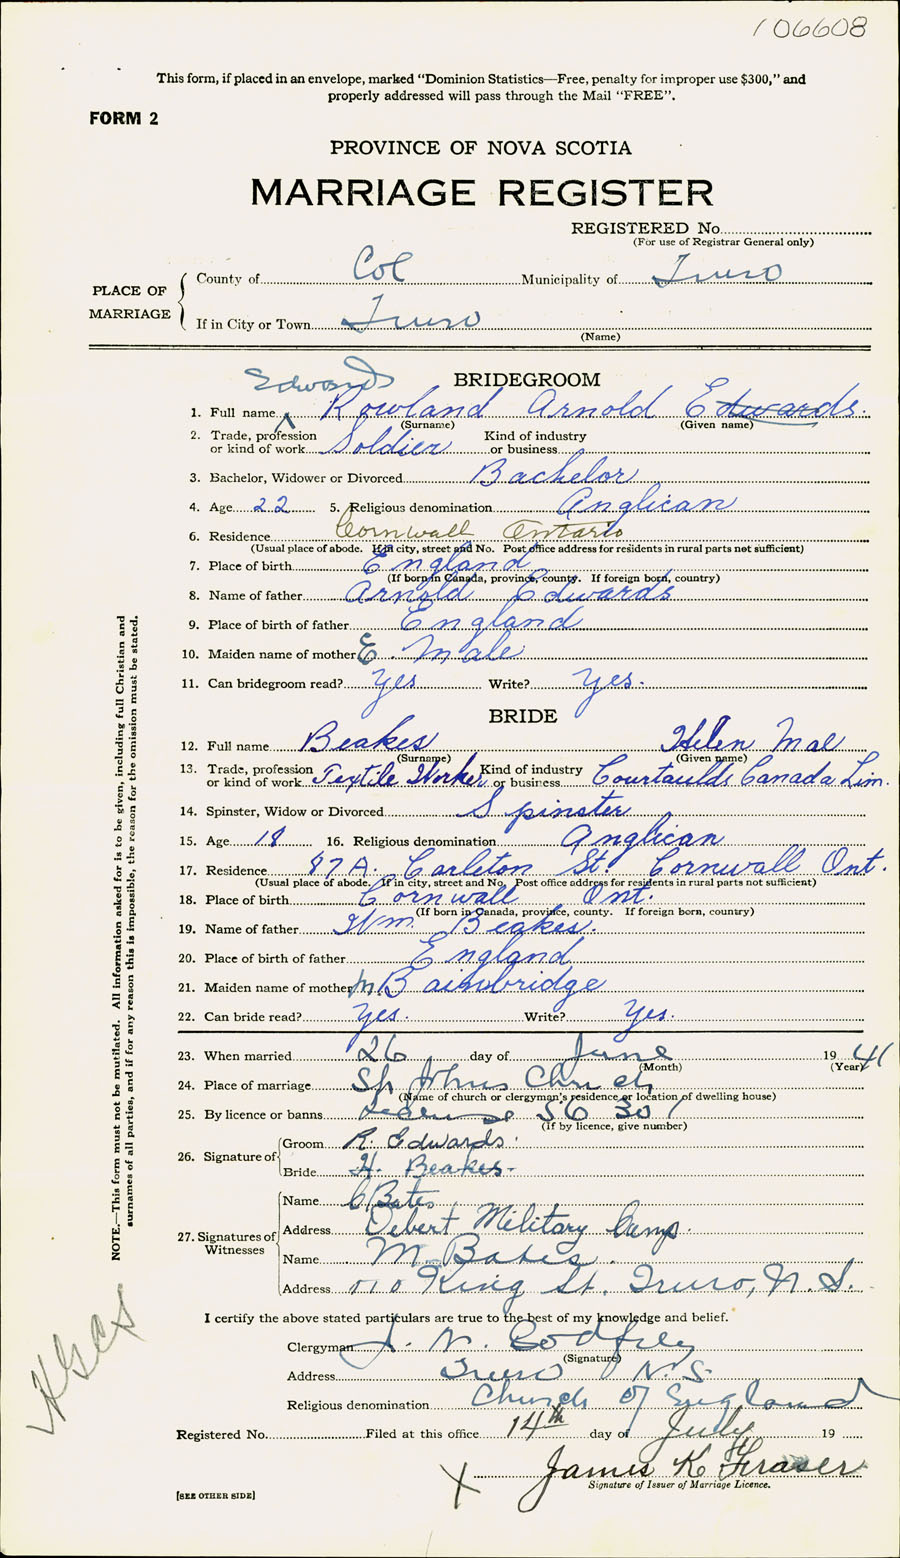 106608
This form, if placed in an envelope, marked "Dominion Statistics—Free, penalty for improper use $300," and
properly addressed will pass through the Mail "FREE".
FORM 2
PROVINCE OF NOVA SCOTIA
MARRIAGE REGISTER
REGISTERED No.
(For use of Registrar General only)
PLACE OF MARRIAGE
County of Col Municipality of Truro
If in City or Town Truro
(Name)
BRIDEGROOM
Edwards
1. Full name Rowland Arnold Edwards.
(Surname) (Given name)
2. Trade, profession or kind of work Soldier Kind of industry or business
3. Bachelor, Widower or Divorced Bachelor
4. Age 22 5. Religious denomination Anglican
6. Residence Cornwall Ontario
(Usual place of abode. If in city, street and No. Post office address for residents in rural parts not sufficient)
7. Place of birth England
(If born in Canada, province, county. If foreign born, country)
8. Name of father Arnold Edwards
9. Place of birth of father England
10. Maiden name of mother E. Male
11. Can bridegroom read? Yes Write? Yes.
BRIDE
12. Full name Beakes Helen Mae
(Surname) (Given name)
13. Trade, profession or kind of work Textile Worker Kind of industry or business Courtaulds Canada Lim.
14. Spinster, Widow or Divorced Spinster
15. Age 18 16. Religious denomination Anglican
17. Residence 87A. Carleton St. Cornwall Ont.
(Usual place of abode. If in city, street and No. Post office address for residents in rural parts not sufficient)
18. Place of birth Cornwall Ont.
(If born in Canada, province, county. If foreign born, country)
19. Name of father Wm. Beakes.
20. Place of birth of father England
21. Maiden name of mother M. Bainbridge
22. Can bride read? Yes. Write? Yes.
23. When married 26 day of June 19 41
(Month) (Year)
24. Place of marriage St Johns Church
(Name of church or clergyman's residence or location of dwelling house)
25. By licence or banns License 56 30
(If by licence, give number)
26. Signature of
Groom R. Edwards.
Bride H. Beakes-
27. Signatures of Witnesses
Name C Bates
Address Debert Military Camp.
Name M. Bates.
Address King St. Truro, N.S.
I certify the above stated particulars are true to the best of my knowledge and belief.
Clergyman J. N. Godfrey
(Signature)
Address Truro N.S.
Religious denomination Church of England
Registered No. Filed at this office 14th day of July 19
X James K Fraser
Signature of Issuer of Marriage Licence.
[SEE OTHER SIDE]
NOTE.—This form must not be mutilated. All information asked for is to be given, including full Christian and
surnames of all parties, and if for any reason this is impossible, the reason for the omission must be stated.